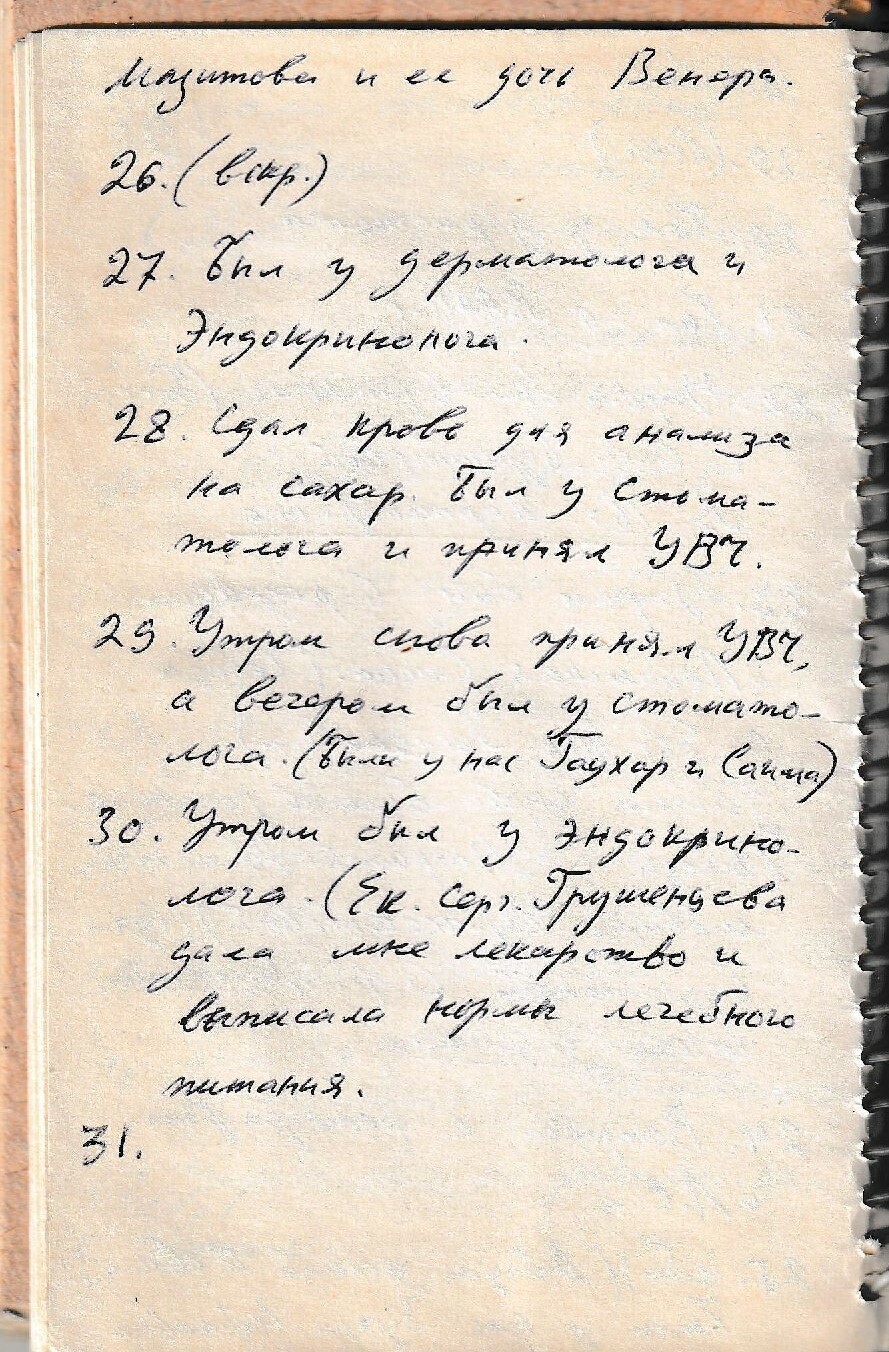 Мазитова и ее дочь Венера.
26. (вскр.)
27. Был у дерматолога и
Эндокринолога.
28. Сдал кровь для анализа
на сахар. Был у стома-
толога и принял УВЧ.
29. Утром снова принял УВЧ,
а вечером был у стомато-
лога. (Были у нас Гаухар и Саима)
30. Утром был у эндокрино-
лога. (Ек. Серг. Грушенцева
дала мне лекарство и
выписала нормы лечебного
питания.
31.